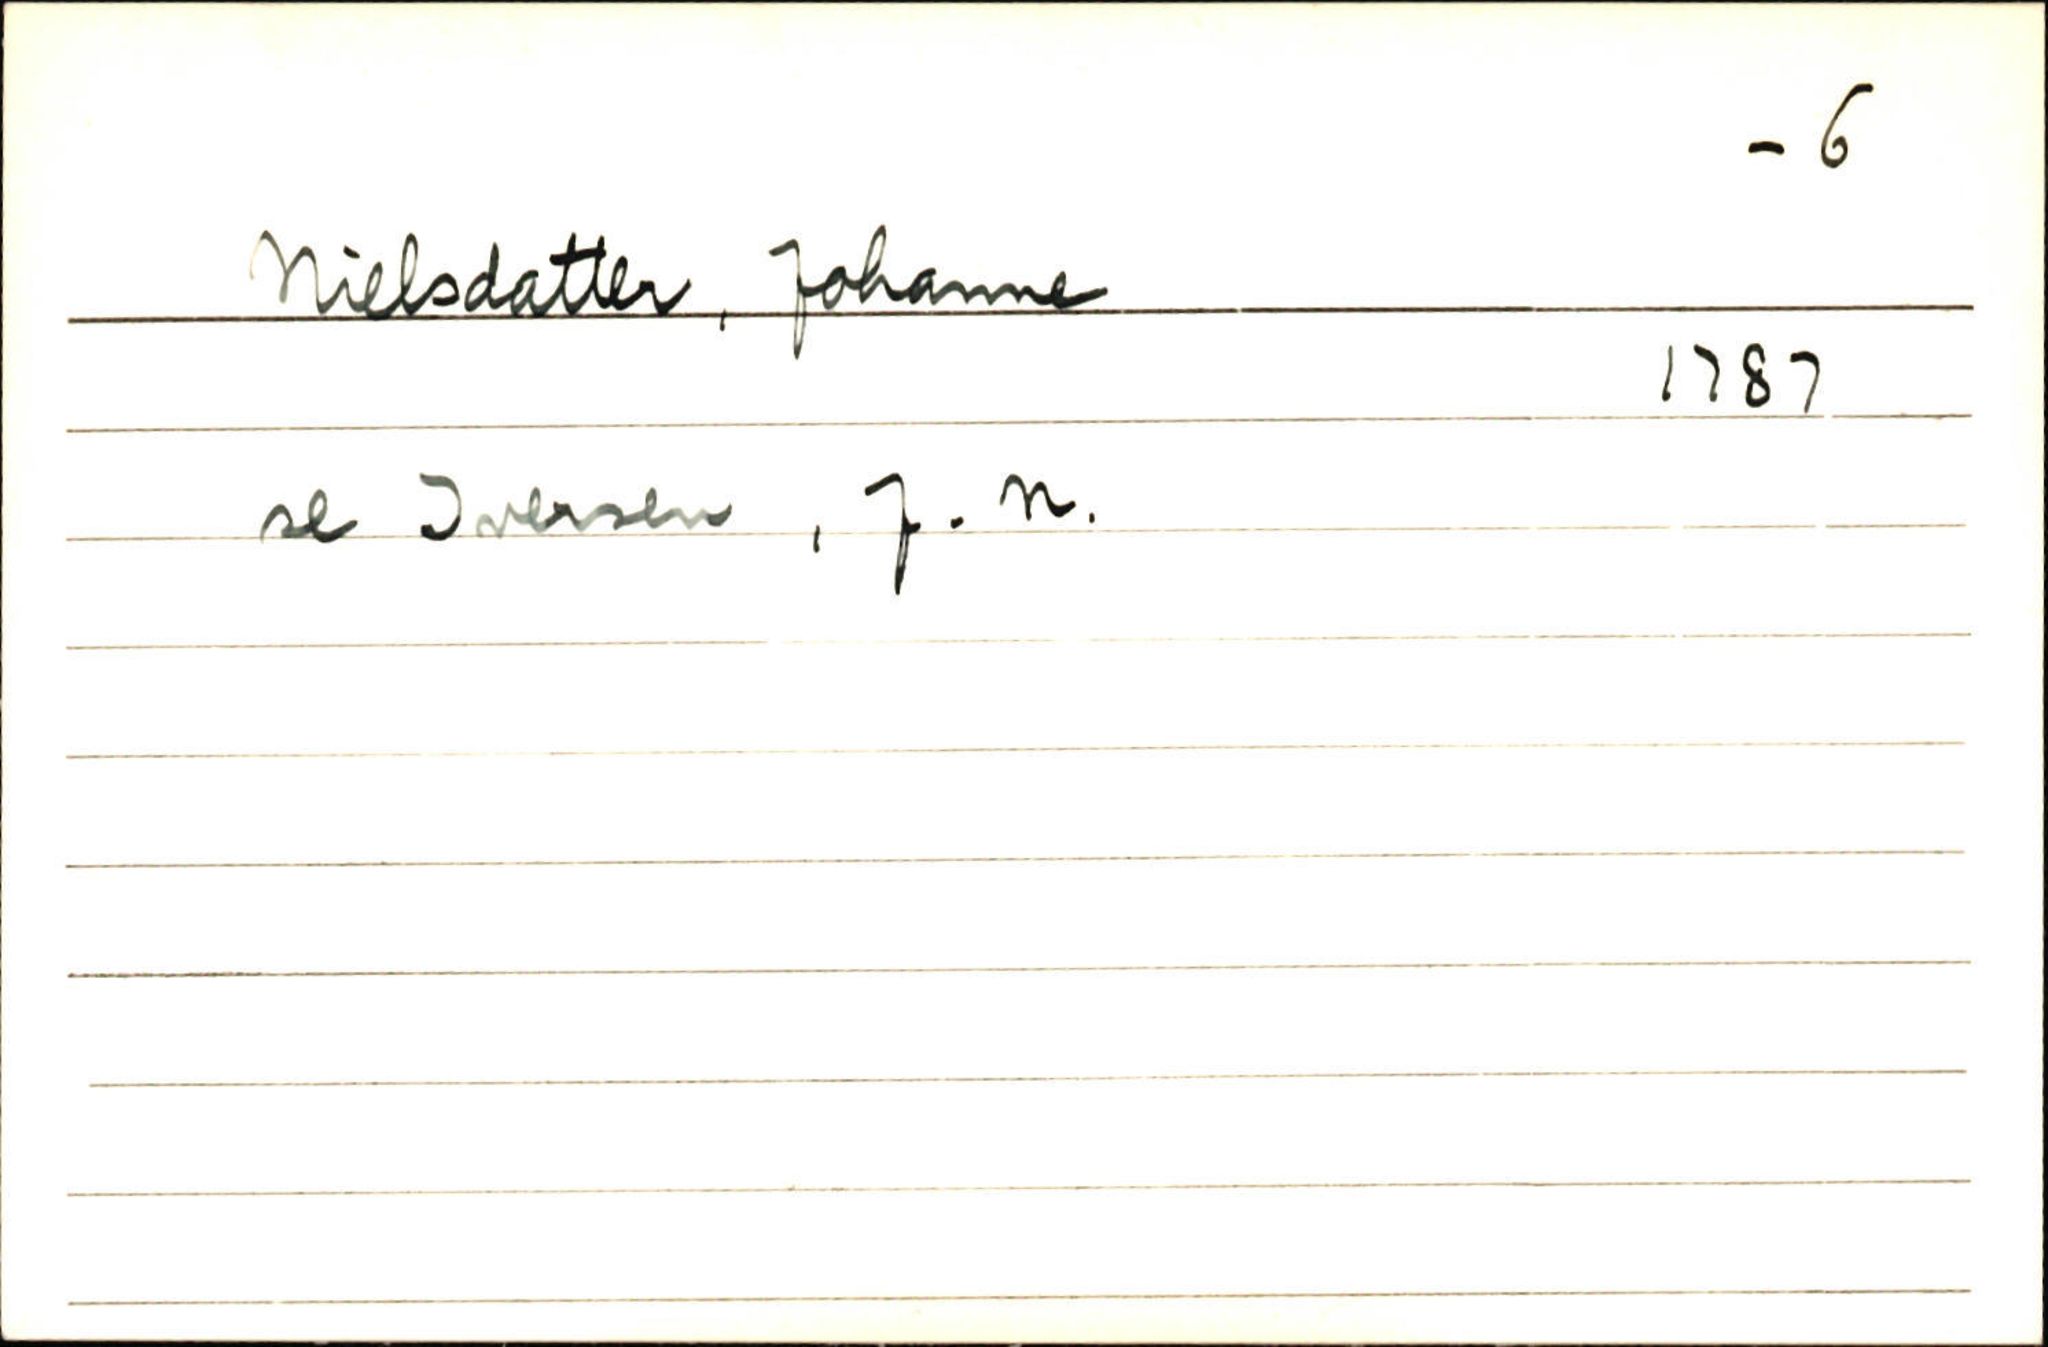 - 6
Nielsdatter, Johanne
1787
se Iversen, J. N.